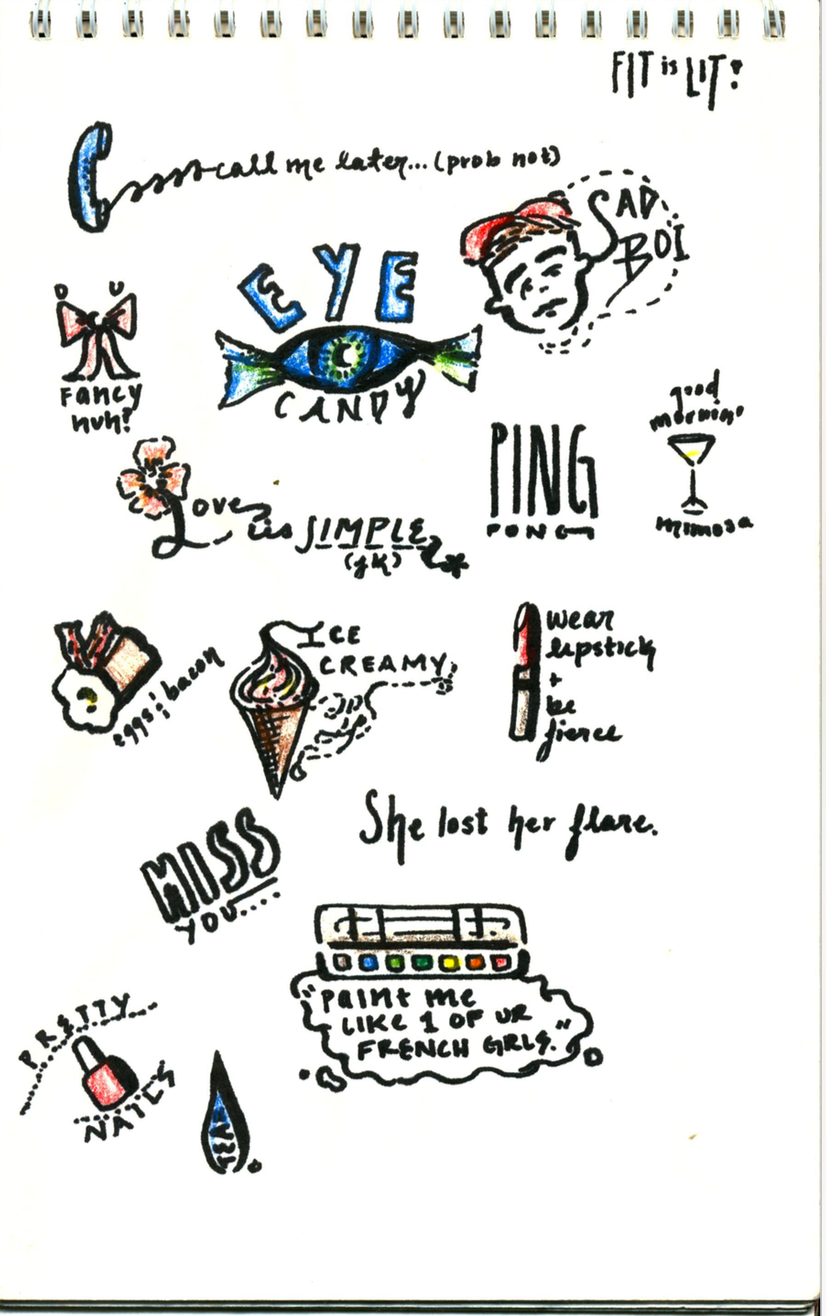 FIT is LIT!
call me later... (prob not)
SAD
BOI
EYE
CANDY
D U
Fancy
huh?
good
mornin'
mimosa
PING
PONG
Love is SIMPLE
(jk)
ICE
CREAMY
eggs & bacon
wear
lipstick
+
be
fierce
She lost her flare.
MISS
YOU....
"Paint me
LIKE 1 OF UR
FRENCH GIRLS."
PRETTY
NAILS
TEAR